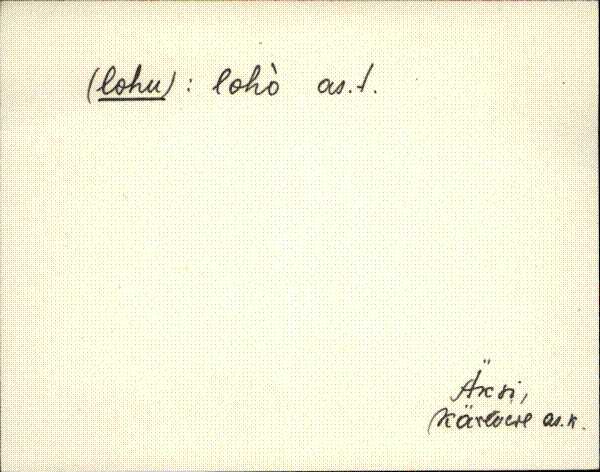 (lohu) : lohò as.t.
Äksi,
Kärevere as.k.